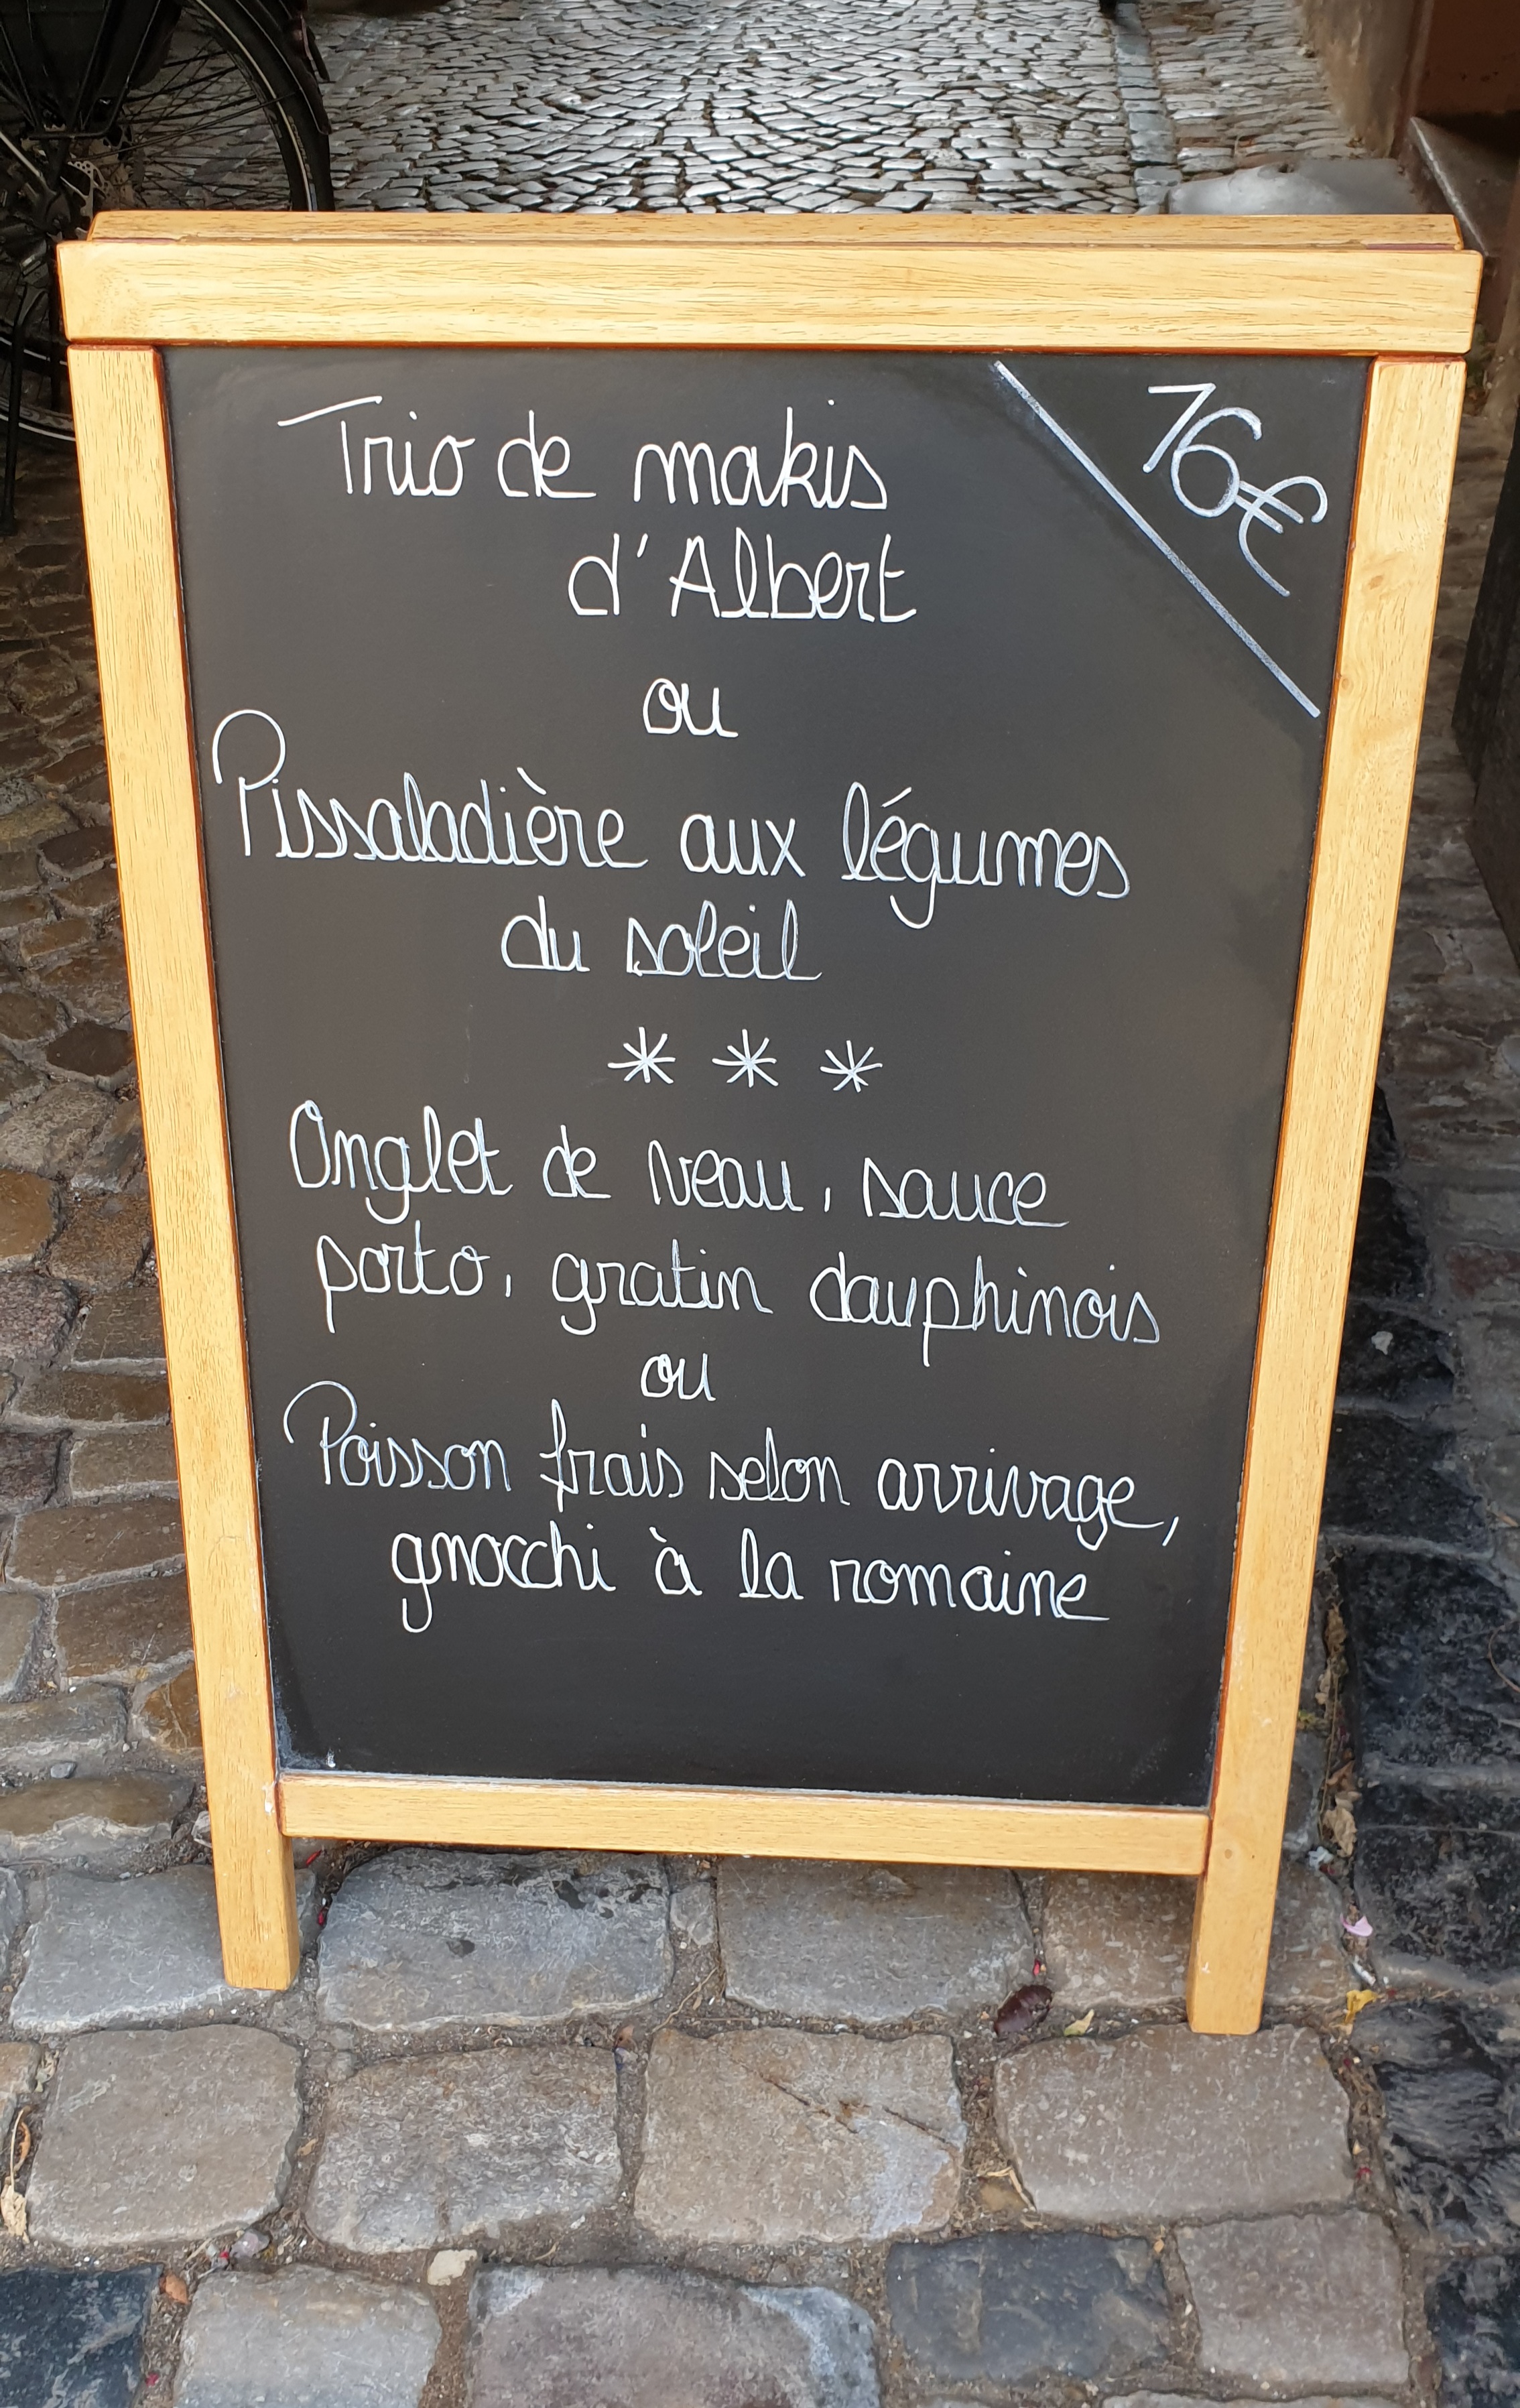 16€
Trio de makis
d'Albert
ou
Pissaladière aux légumes
du soleil
* * *
Onglet de veau, sauce
porto, gratin dauphinois
ou
Poisson frais selon arrivage,
gnocchi à la romaine